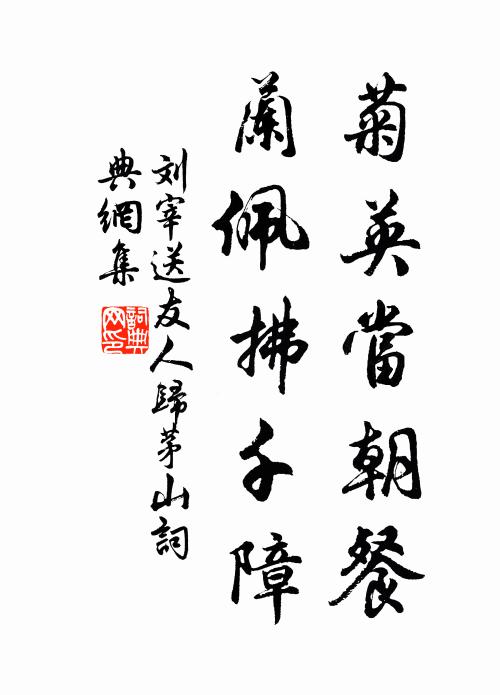 菊英當朝餐
蘭佩拂千障
刘宰送友人歸茅山詞
典網集
詞典网印